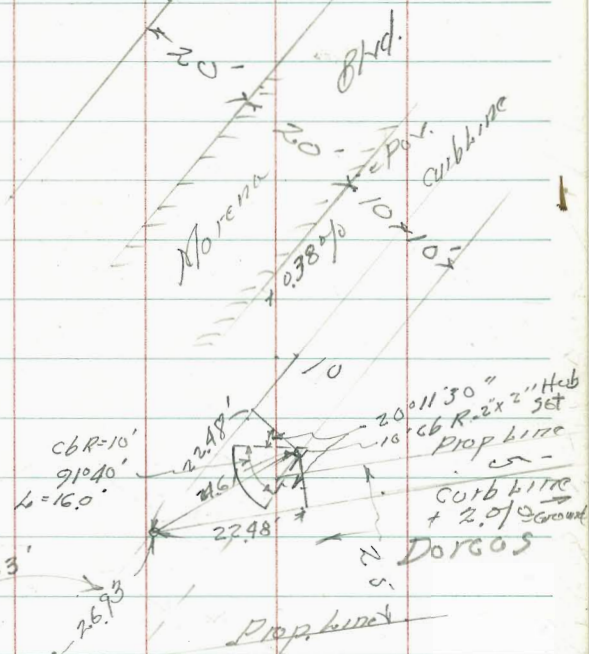 20'
Blvd.
20'
Pav.
Curb Line
Morena
10'
10'
+ 0.38%
10
20°11'30"
2"x2" Hub
Set
10' Cb R.
Prop Line
Cb R=10'
91°40'
L=16.0'
22.48'
22.48'
5'
Curb Line
+ 2.0%
Ground
Dorcas
25'
3'
26.93
Prop. Line